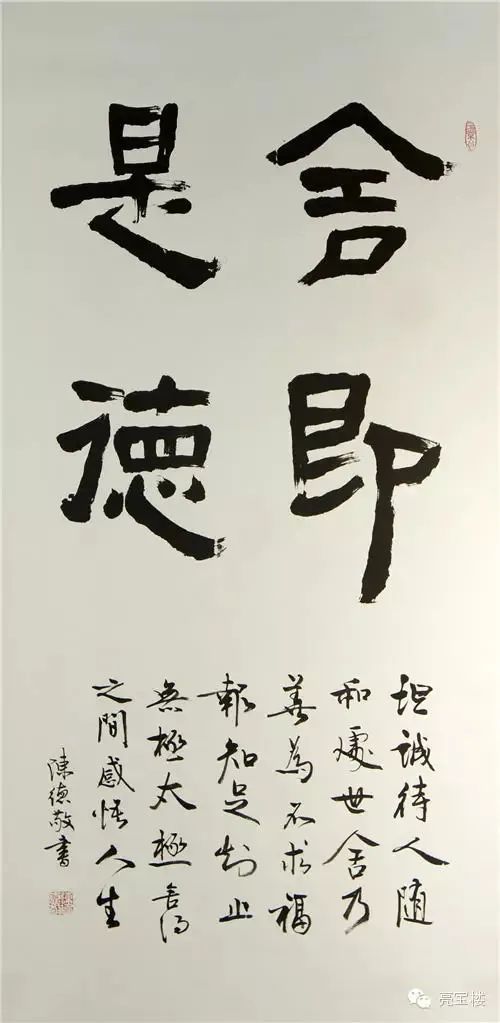 舍即
是德
坦誠待人随
和處世舍乃
善為不求福
報知足知止
無極太極舍得
之間感悟人生
陳德敬書
亮宝楼